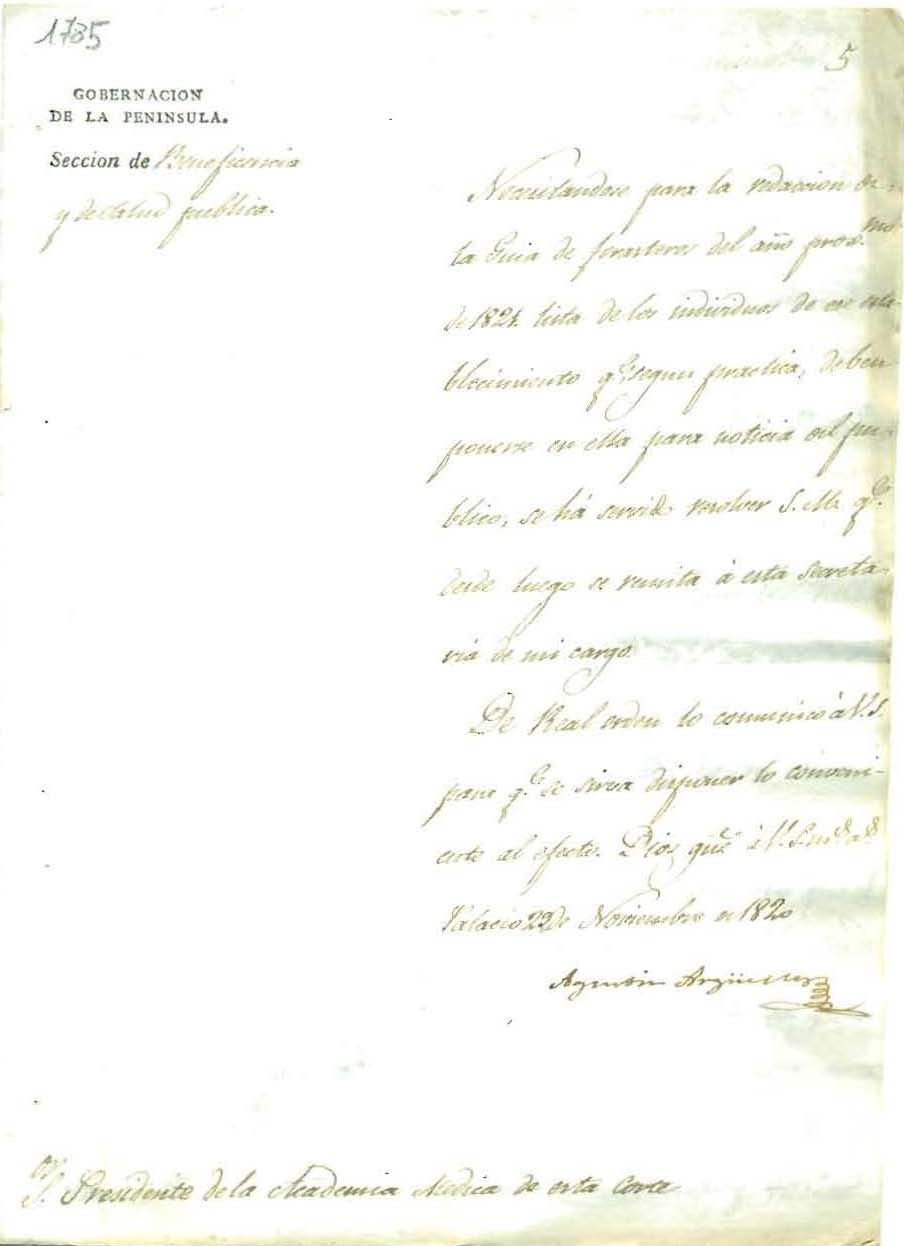 1785
5
GOBERNACION
DE LA PENINSULA.
Seccion de Beneficencia
y de salud publica.
Necesitandose para la redaccion de
la Guia de forasteros del año prox.mo
de 1821. lista de los individuos de ese esta-
blecimiento q.e segun practica, deben
ponerse en ella para noticia del pu-
blico, se há servido resolver S. M. q.e
desde luego se remita á esta secreta-
ria de mi cargo.
De Real orden lo comunico á V. S.
para q.e se sirva disponer lo conveni-
ente al efecto. Dios gue á V. S. m.s a.s
Palacio 29 de Noviembre de 1820
Agustin Argüelles
S.or Presidente de la Academia Medica de esta Corte